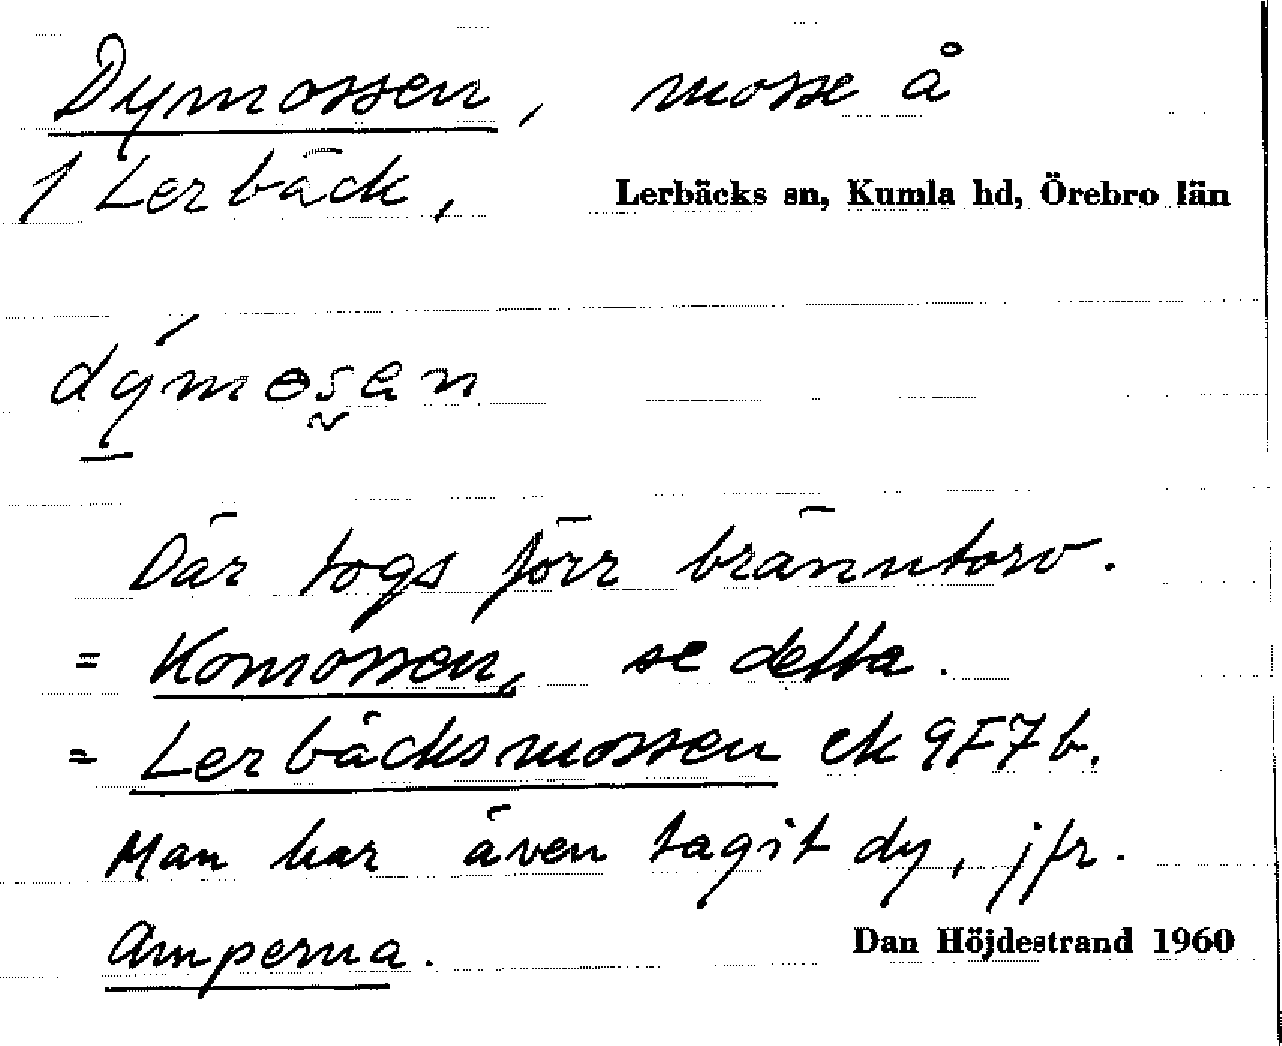 Dymossen, mosse å
1 Lerbäck, Lerbäcks sn, Kumla hd, Örebro län
Där togs förr bränntorv.
= Komossen, se detta.
= Lerbäcksmossen ek 9F7b.
Man har även tagit dy, jfr.
Amperna. Dan Höjdestrand 1960